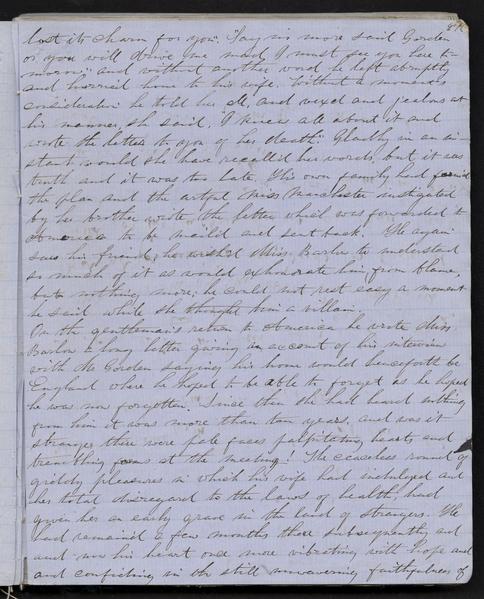 lost its charm for you". "Say no more said Gorden
or you will drive me mad I must see you here to-
morrow," and without another word he left abruptly
and hurried home to his wife. Without a moments
consideration he told her all, and vexed and jealous at
his manner, she said, "I knew all about it and
wrote the letter to you of her death." Gladly in an in-
stant would she have recalled her words, but it was
truth and it was too late. His own family had formd
the plan and the artful Miss Manchester instigated
by her brother wrote the letter which was forwarded to
America to be maild and sent back. He again
saw his friend, he wished Miss Barlow to understand
so much of it as would exhonorate him from blame,
but nothing more; he could not rest easy a moment
he said while she thought him a villain.
On the gentleman's return to America he wrote Miss
Barlow a long letter giving an account of his interview
with Mr Gorden saying his home would henceforth be
England where he hoped to be able to forget as he hoped
he was now forgotten. Since then she had heard nothing
from him it was more than ten years and was it
strange there were pale faces palpitating hearts and
trembling forms at the meeting! The ceaseless round of
giddy pleasures in which his wife had indulged and
her total disregard to the laws of health had
given her an early grave in the land of strangers. He
had remained a few months there subsequently and
and now his heart once more vibrating with hope and
and confiding in the still unwavering faithfulness of